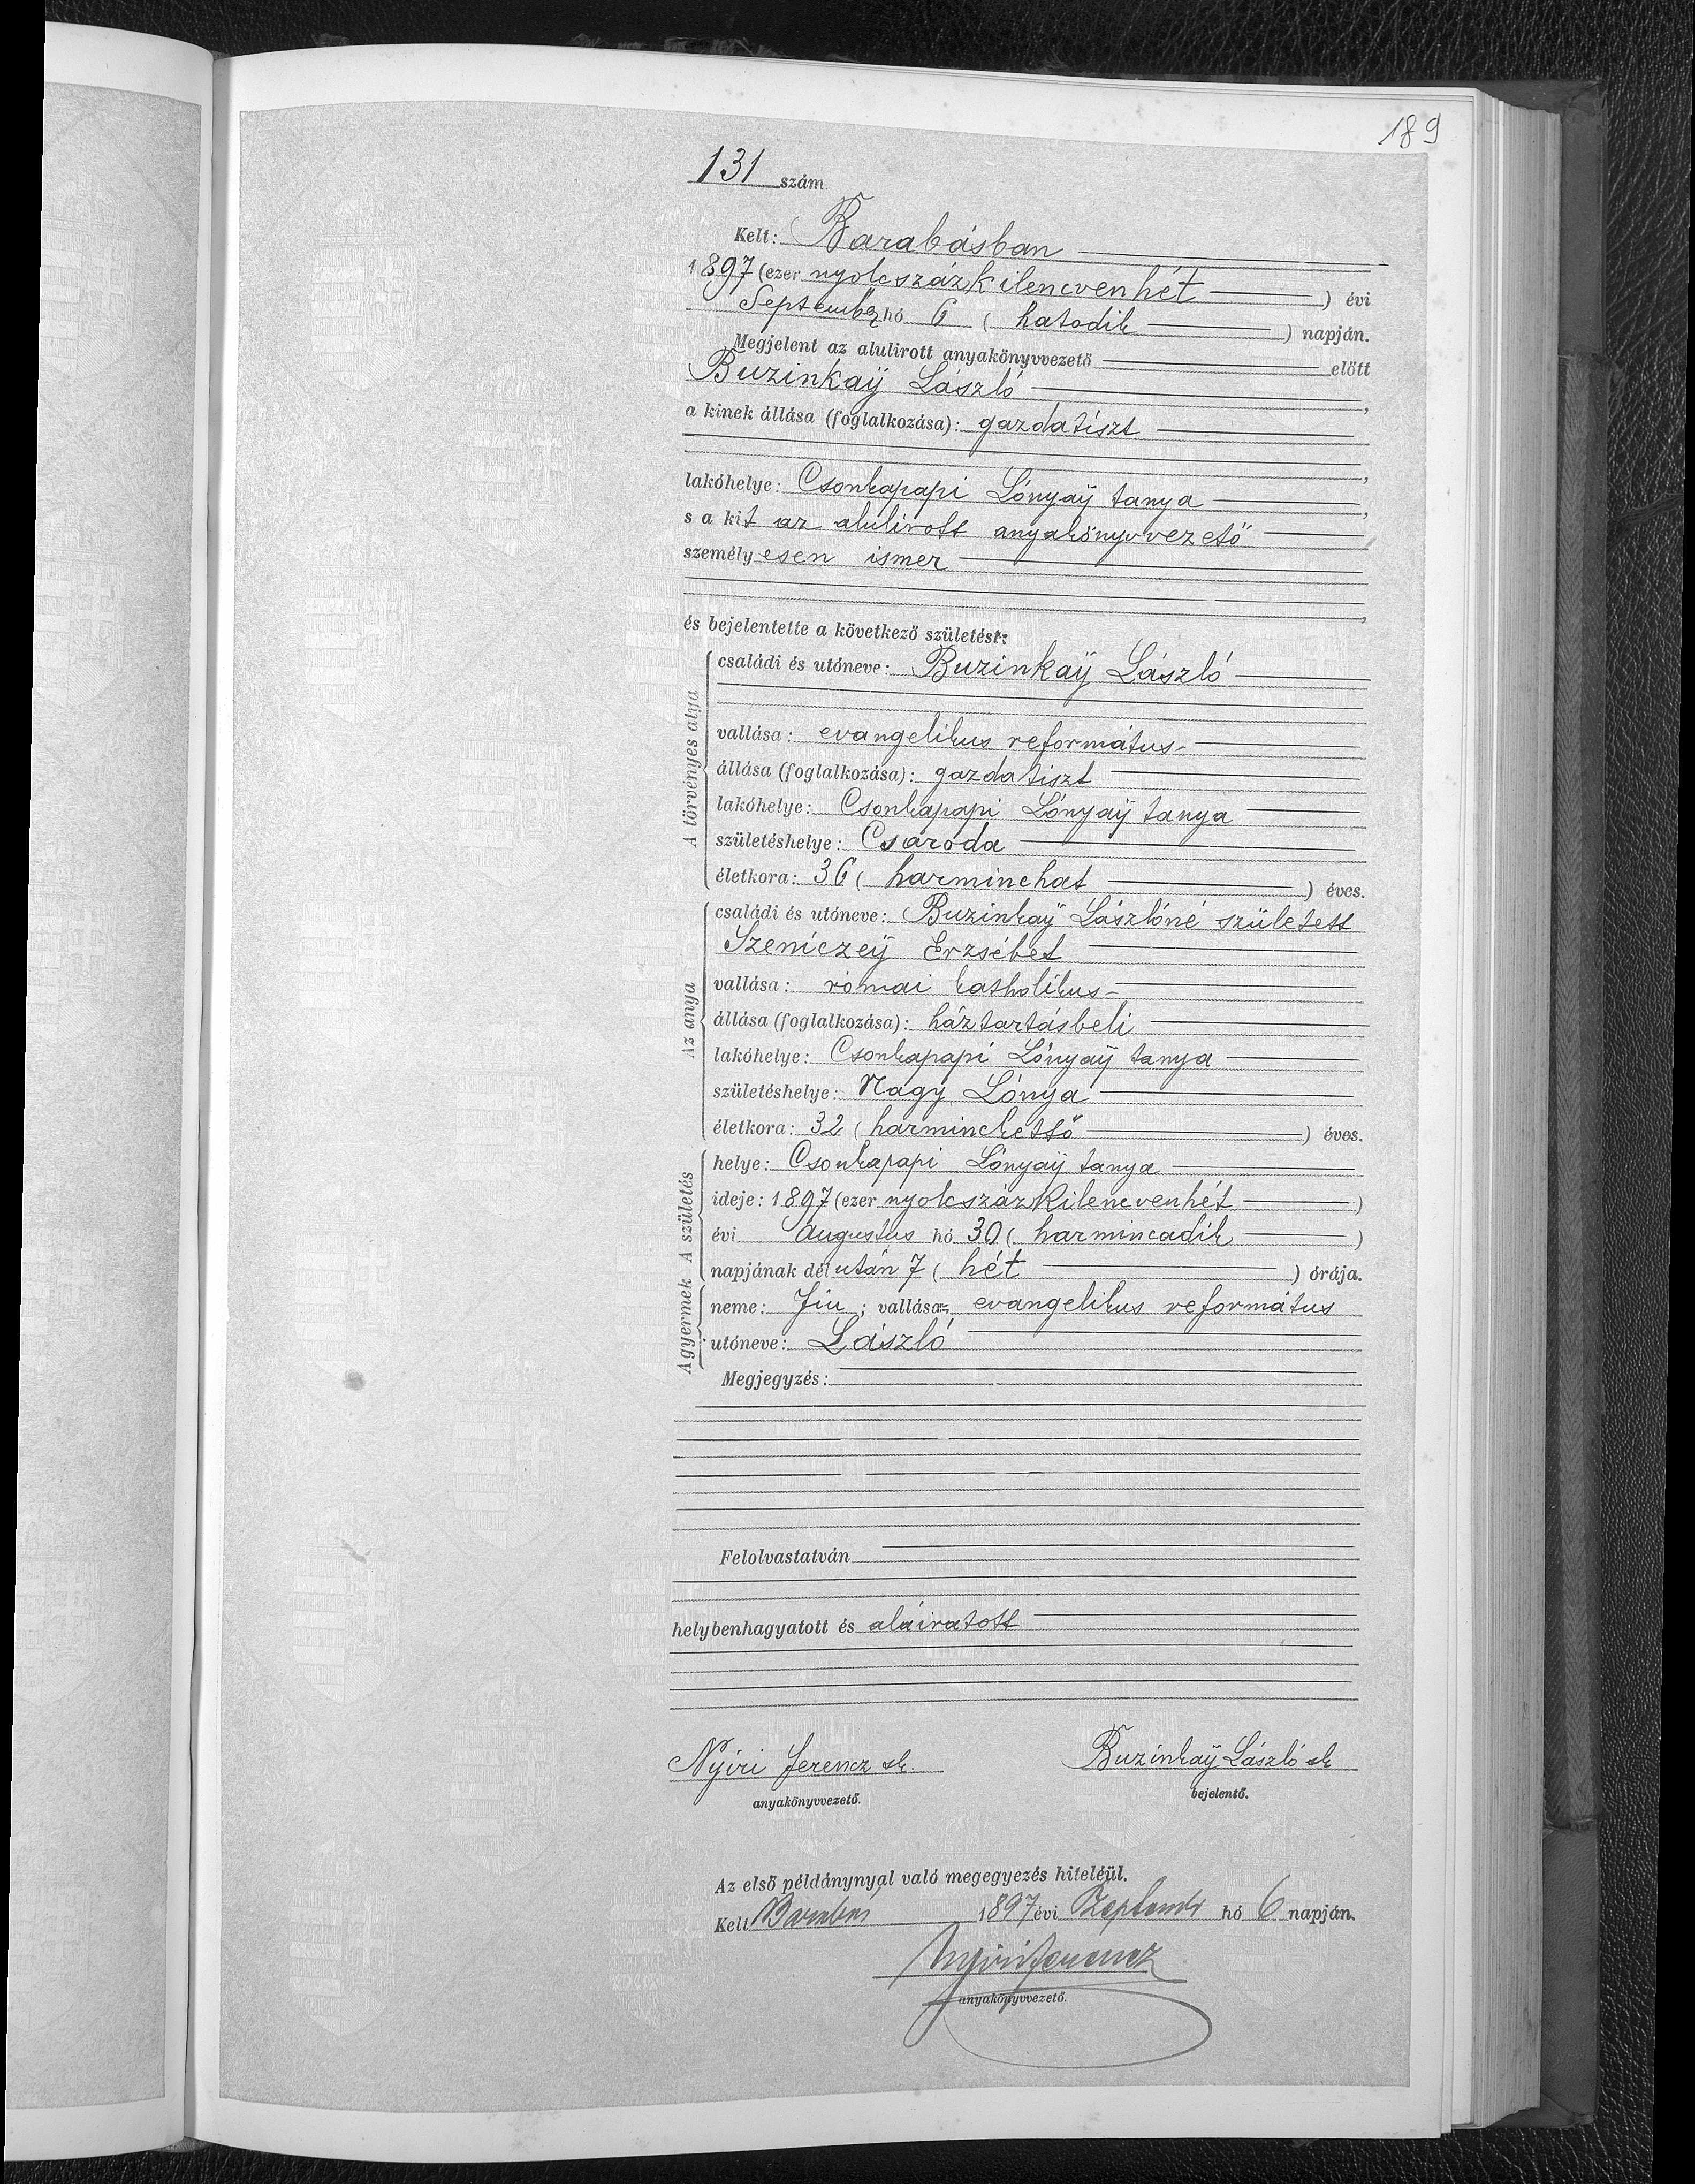 189
131 szám.
Kelt: Barabásban
1897 (ezer nyolcszázkilencvenhét) évi
September hó 6 (hatodik) napján.
Megjelent az alulirott anyakönyvvezető előtt
Buzinkaÿ László,
a kinek állása (foglalkozása): gazdatiszt
lakóhelye: Csonkapapi Lónyaÿ tanya,
s a kit az alulirott anyakönyvvezető
személyesen ismer
és bejelentette a következő születést:
A törvényes atya
családi és utóneve: Buzinkaÿ László
vallása: evangelikus református
állása (foglalkozása): gazdatiszt
lakóhelye: Csonkapapi Lónyaÿ tanya
születéshelye: Csaroda
életkora: 36 (harminchat) éves.
Az anya
családi és utóneve: Buzinkaÿ Lászlóné született
Szeniczeÿ Erzsébet
vallása: római katholikus
állása (foglalkozása): háztartásbeli
lakóhelye: Csonkapapi Lónyaÿ tanya
születéshelye: Nagy Lónya
életkora: 32 (harminckettő) éves.
A születés
helye: Csonkapapi Lónyaÿ tanya
ideje: 1897 (ezer nyolcszázkilencvenhét)
évi augustus hó 30 (harmincadik)
napjának délután 7 (hét) órája.
A gyermek
neme: fiu; vallása: evangelikus református
utóneve: László
Megjegyzés:
Felolvastatván
helybenhagyatott és aláiratott
Nyiri Ferencz sk. Buzinkaÿ László sk
anyakönyvvezető. bejelentő.
Az első példánynyal való megegyezés hiteléül.
Kelt Barabás 1897 évi Szeptember hó 6 napján.
Nyiri Ferencz
anyakönyvvezető.